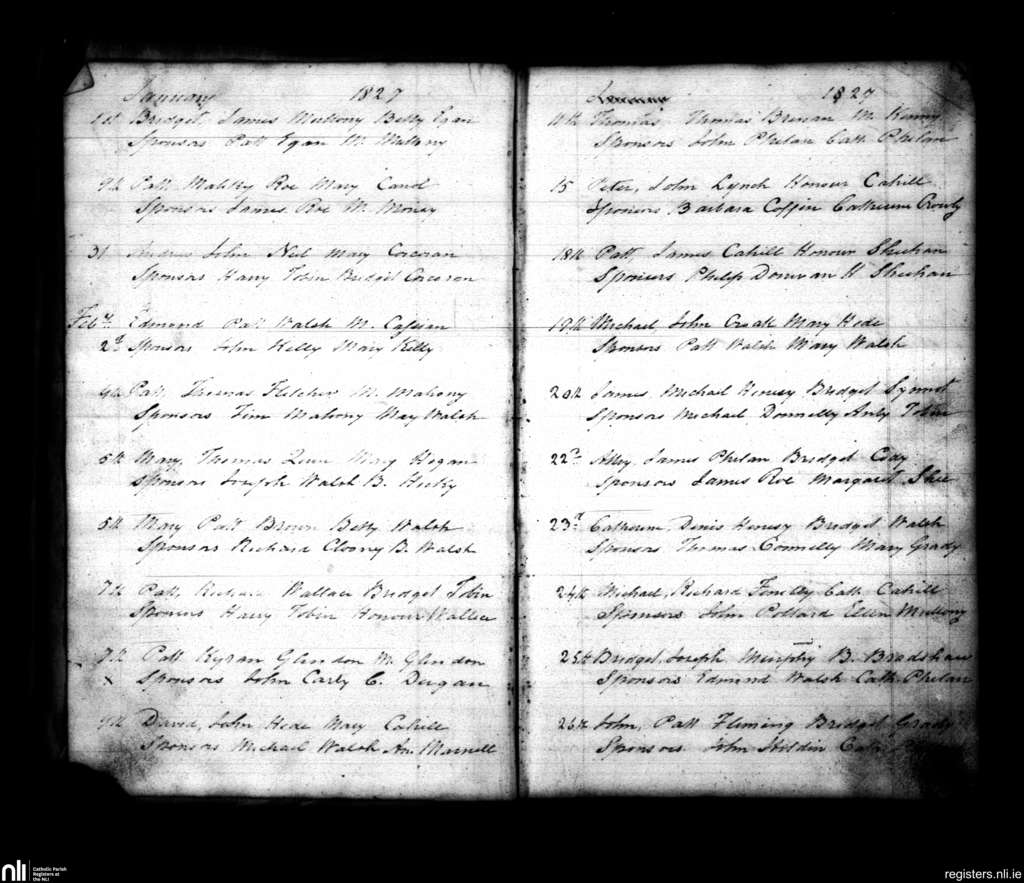 January 1827
1st Bridget, James Mullony Betty Egan
Sponsors Patt Egan M. Mullony
9th Patt Roe Mary
Sponsors James Roe M.
31 John Neil Mary Corcoran
Sponsors Harry Tobin Bridget Corcoran
Feby. Edmond Patt Walsh M.
2d Sponsors John Kelly Mary Kelly
4th Patt, Thomas Fletcher M. Mahony
Sponsors Tim Mahony May Walsh
5th Mary, Thomas Quin Mary Hogan
Sponsors Joseph Walsh B. Hicky
5th Mary Patt Brown Betty Walsh
Sponsors Richard Clooney B. Walsh
7th Patt, Richard Wallace Bridget Tobin
Sponsors Harry Tobin Honour Wallace
7th Patt Kyran Glendon M. Glendon
x Sponsors John Carly C. Dugan
9th David, John Hede Mary Cahill
Sponsors Michael Walsh An. Marnell
1827
11th Thomas, Thomas Brenan M. Kenny
Sponsors John Phelan Cath Phelan
15 Peter, John Lynch Honour Cahill
Sponsors Barbara Coffin Catherine
18th Patt, James Cahill Honour Sheehan
Sponsors Philip Donivan H Sheehan
19th Michael John Croak Mary Hede
Sponsors Patt Walsh Mary Walsh
20th James Michael Henesy Bridget Synnot
Sponsors Michael Donnelly Anty Tobin
22d Alley James Phelan Bridget Cody
Sponsors James Roe Margaret Shee
23d Catherine Denis Henesy Bridget Walsh
Sponsors Thomas Connelly Mary Grady
24th Michael, Richard Cath Cahill
Sponsors John Pollard Ellen Mullony
25th Bridget, Joseph Murphy B. Bradshaw
Sponsors Edmund Walsh Cath. Phelan
26th John, Patt Fleming Bridget Grady
Sponsors John Holdin
nli Catholic Parish
Registers at
the NLI
registers.nli.ie